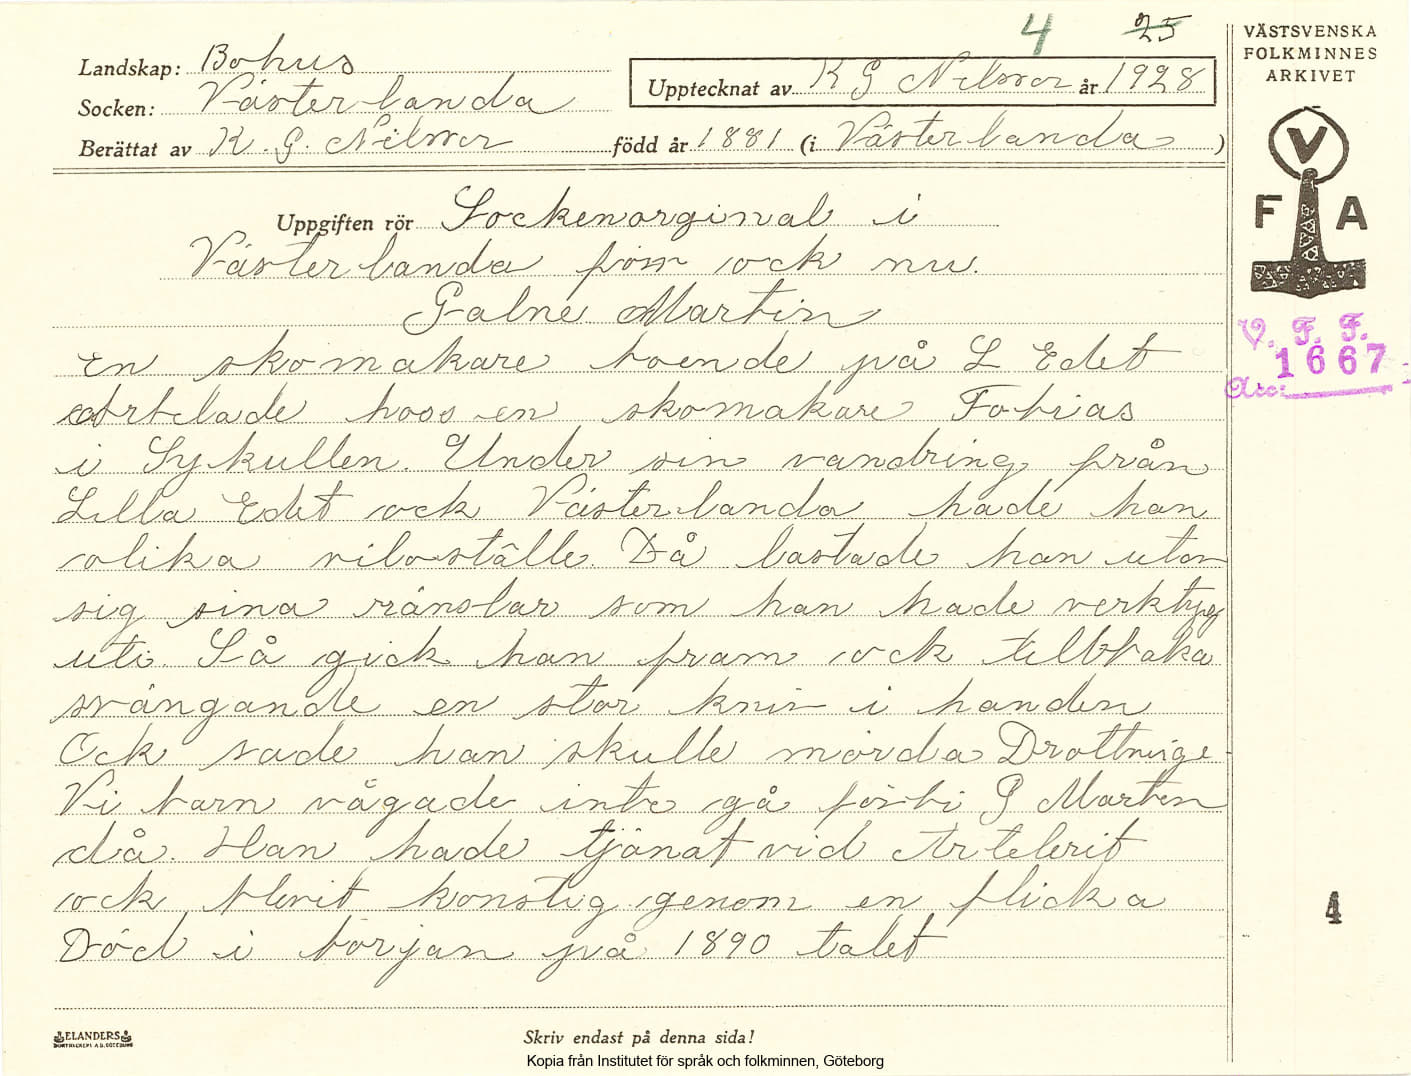 4 25
Landskap: Bohus
Socken: Västerlanda
Upptecknat av K G Nilsson år 1928
Berättat av K. G. Nilsson född år 1881 (i Västerlanda)
Uppgiften rör Sockenorginal i
Västerlanda förr ock nu.
Galne Martin
En skomakare boende på L Edet
arbetade hoss en skomakare Tobias
i Sykullen. Under sin vandring från
Lilla Edet ock Västerlanda hade han
olika viloställe. Då lastade han utom
sig sina ränslar som han hade verktyg
uti. Så gick han fram ock tillbaka
svängande en stor kniv i handen
Ock sade han skulle mörda
Vi barn vågade inte gå förbi G Marten
då. Han hade tjänat vid Artelerit
ock blevit konstig genom en flicka
Död i början på 1890 talet
ELANDERS
Skriv endast på denna sida!
Kopia från Institutet för språk och folkminnen, Göteborg
VÄSTSVENSKA
FOLKMINNES
ARKIVET
V
F A
V. F. F.
1667
Acc:
4